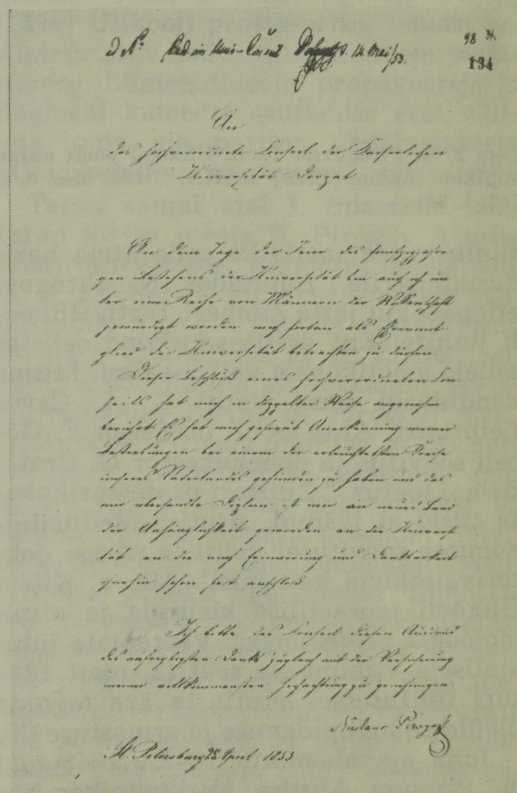 98
134
An
das hochverordnete Conseil der Kaiserlichen
Universität Dorpat
An dem Tage der Feier des funfzigjähri
gen Bestehens der Universität bin auch ich un
ter eine Reihe von Männern der Wissenschaft
gewürdigt worden mich fortan als Ehrenmit
glied der Universität betrachten zu dürfen
Dieser Beschluß eines hochverordneten Con
seils hat mich in doppelter Weise angenehm
berührt Es hat mich gefreut Anerkennung meiner
Bestrebungen bei einem der erleuchtetsten Kreise
unseres Vaterlandes gefunden zu haben und das
mir übersandte Diplom ist mir ein neues Band
der Anhänglichkeit geworden an die Universi
tät an die mich Erinnerung und Dankbarkeit
ohnehin schon fest anschloß
Ich bitte das Conseil diesen Ausdruck
des Danks zugleich mit der Versicherung
meiner vollkommensten Hochachtung zu genehmigen
Nicolaus Pirogoff
St. Petersburg 28 April 1853